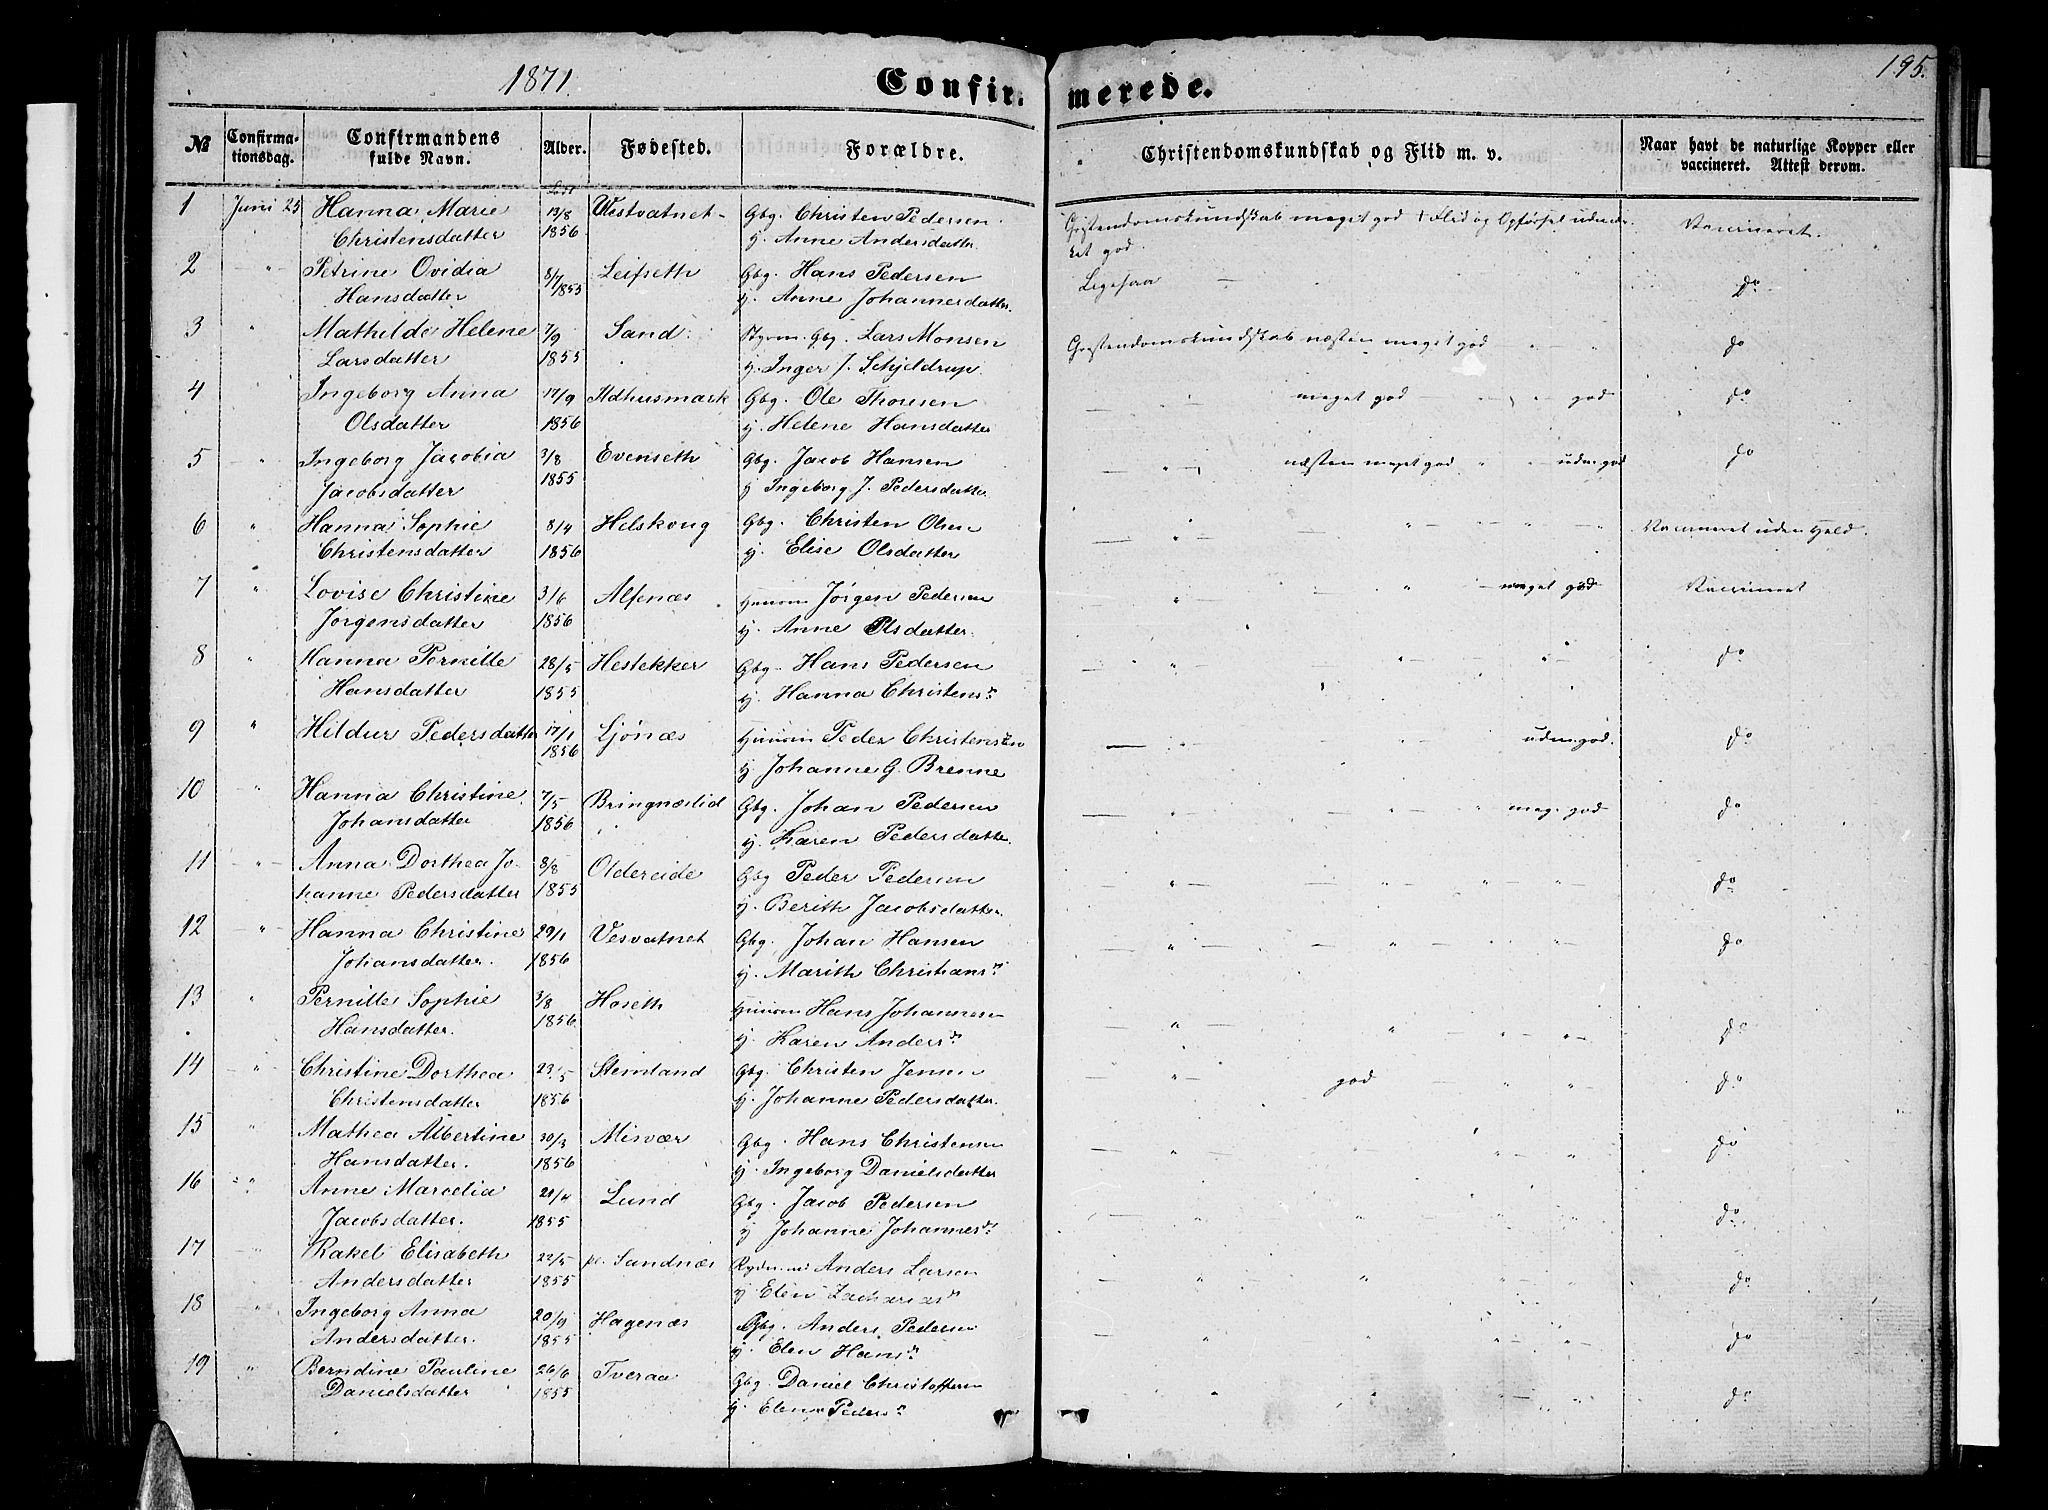 1871.
Confirmerede.
195.
№ Confirmationsdag. Confirmandens fulde Navn. Alder. Fødested. Forældre. Christendomskundskab og Flid m. v. Naar havt de naturlige Kopper eller vaccineret. Attest derom.
1 Juni 25 Hanna Marie 13/8 Vestvatnet Gbg. Christen Pedersen Cristendomskundskab meget god Flid og Opførsel udmær- Vaccineret.
Christensdatter 1856 H. Anne Andersdatter ket god.
2 " Petrine Ovidia 8/7 Leifseth Gbg. Hans Pedersen Ligesaa do
Hansdatter 1855 H. Anne Johannesdatter.
3 " Mathilde Helene 7/9 Sand Gbg. Lars Monsen Cristendomskundskab næsten meget god " do
Larsdatter 1855 H. Inger J. Schjeldrup.
4 " Ingeborg Anna 17/9 Gbg. Ole Thoresen " meget god " " god do
Olsdatter 1856 H. Helene Hansdatter
5 " Ingeborg Jacobia 3/8 Evenseth Gbg. Jacob Hansen " næsten meget god " " udm. god do
Jacobsdatter 1855 H Ingeborg J. Pedersdatter
6 " Hanna Sophie 8/4 Helskong Gbg. Christen Olsen " " " " Vaccineret uden Held.
Christensdatter 1856 H. Elise Olsdatter
7 " Lovise Christine 3/6 Alfenæs Huusm Jørgen Pedersen " " meget god Vaccineret
Jørgensdatter 1856 H. Anne Olsdatter.
8 " Hanna Pernille 28/5 Hestekker Gbg. Hans Pedersen " " " do
Hansdatter 1855 H. Hanna Christensdr
9 " Hildur Pedersdatter 17/1 Ljønæs Huusm Peder Christensen " " udm. god. do
1856 H. Johanne G. Brenne
10 " Hanna Christine 7/5 Bringnæslid Gbg. Johan Pedersen " " " meg. god do
Johansdatter 1856 H. Karen Pedersdatter.
11 " Anna Dorthea Jo- 8/8 Oldereide Gbg Peder Pedersen " " " " do
hanne Pedersdatter 1855 H. Berith Jacobsdatter.
12 " Hanna Christine 29/1 Vesvatnet Gbg. Johan Hansen " " " do
Johansdatter. 1856 H. Marith Christiansdr
13 " Pernille Sophie 3/8 Hoseth Huusm Hans Johannesen " " " do
Hansdatter. 1856 H. Karen Andersdr
14 " Christine Dorthea 23/5 Stemland Gbg. Christen Jensen " god " " do
Christensdatter 1856 H. Johanne Pedersdatter.
15 " Mathea Albertine 30/3 Misvær Gbg. Hans Christensen " " " " do
Hansdatter. 1856 H. Ingeborg Danielsdatter
16 " Anne Marcelia 20/4 Lund Gbg. Jacob Pedersen " " " " do
Jacobsdatter. 1855 H Johanne Johannesdr
17 " Rakel Elisabeth 22/5 pl. Sandnæs Anders Larsen " " " " do
Andersdatter 1855 H Elen Zachariasdr
18 " Ingeborg Anna 20/9 Hagenæs Gbg. Anders Pedersen " " " " do
Andersdatter. 1855 H. Elen Hansdr
19 " Berndine Pauline 26/6 Tveraa Gbg. Daniel Christoffersen " " " " do
Danielsdatter 1855 H. Elen Pedersdr